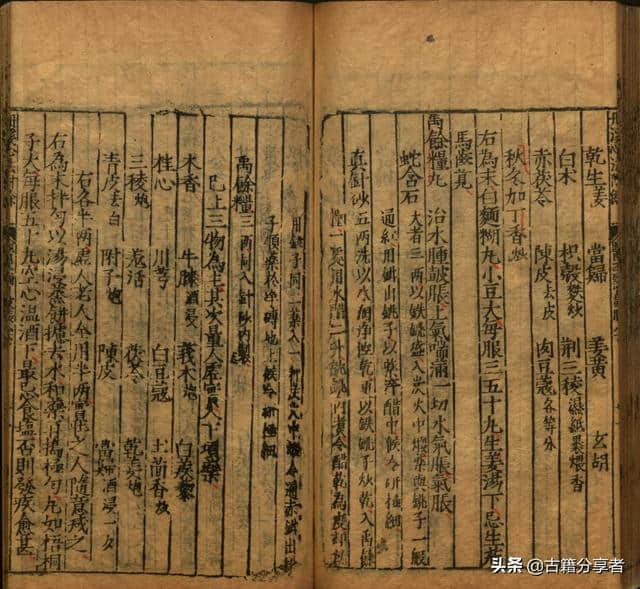 乾生姜 當歸 姜黃 玄胡
白术 枳殼麩炒 荆三稜濕紙裹煨香
赤茯苓 陳皮去皮 肉豆蔻各等分
秋冬加丁香炒
右為末白麵糊丸小豆大每服三五十丸生姜湯下忌生茄
馬齒莧
禹餘糧丸 治水腫皷脹上氣喘滿一切水氣脹氣脹
蛇含石 大者三两以鉄銚盛入炭火中煅藥與銚子一般
通紅用鉗出銚子以藥淬醋中候冷研極細
真針砂 五两洗以水淘淨控乾更以鉄銚子炒乾入禹餘
糧一處用水醋二升就銚內煮令醋乾為度却
用銚子同二藥入一秤炭火中煅令通赤鉗出銚
子傾藥於淨磚地上候冷研極細
禹餘糧三两同入針砂内製
已上三物為主其次量人虛實入下項藥
木香 牛膝酒浸 莪术炮 白蒺藜
桂心 川芎 白豆蔻 土茴香炒
三稜炮 羌活 茯苓 乾姜炮
青皮去白 附子炮 陳皮 當歸酒浸一夕
右各半两虛人老人全用半两實之人隨意减之
右為末拌勻以湯浸蒸餅去水和藥再搗極勻丸如梧桐
子大每服五十丸空心温酒下最忌食塩否則發疾愈甚
头条 @古籍分享者